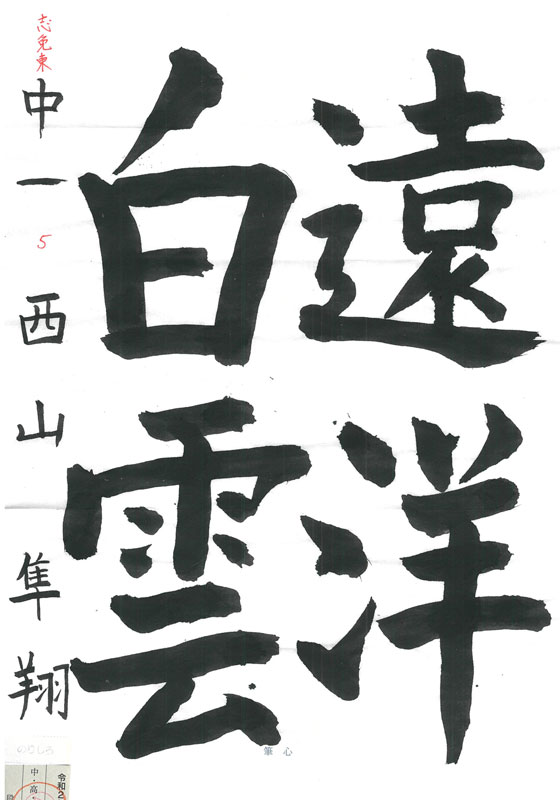 遠洋
白雲
志免東
中一 5 西山隼翔
のりしろ
令和2
中・高
筆心